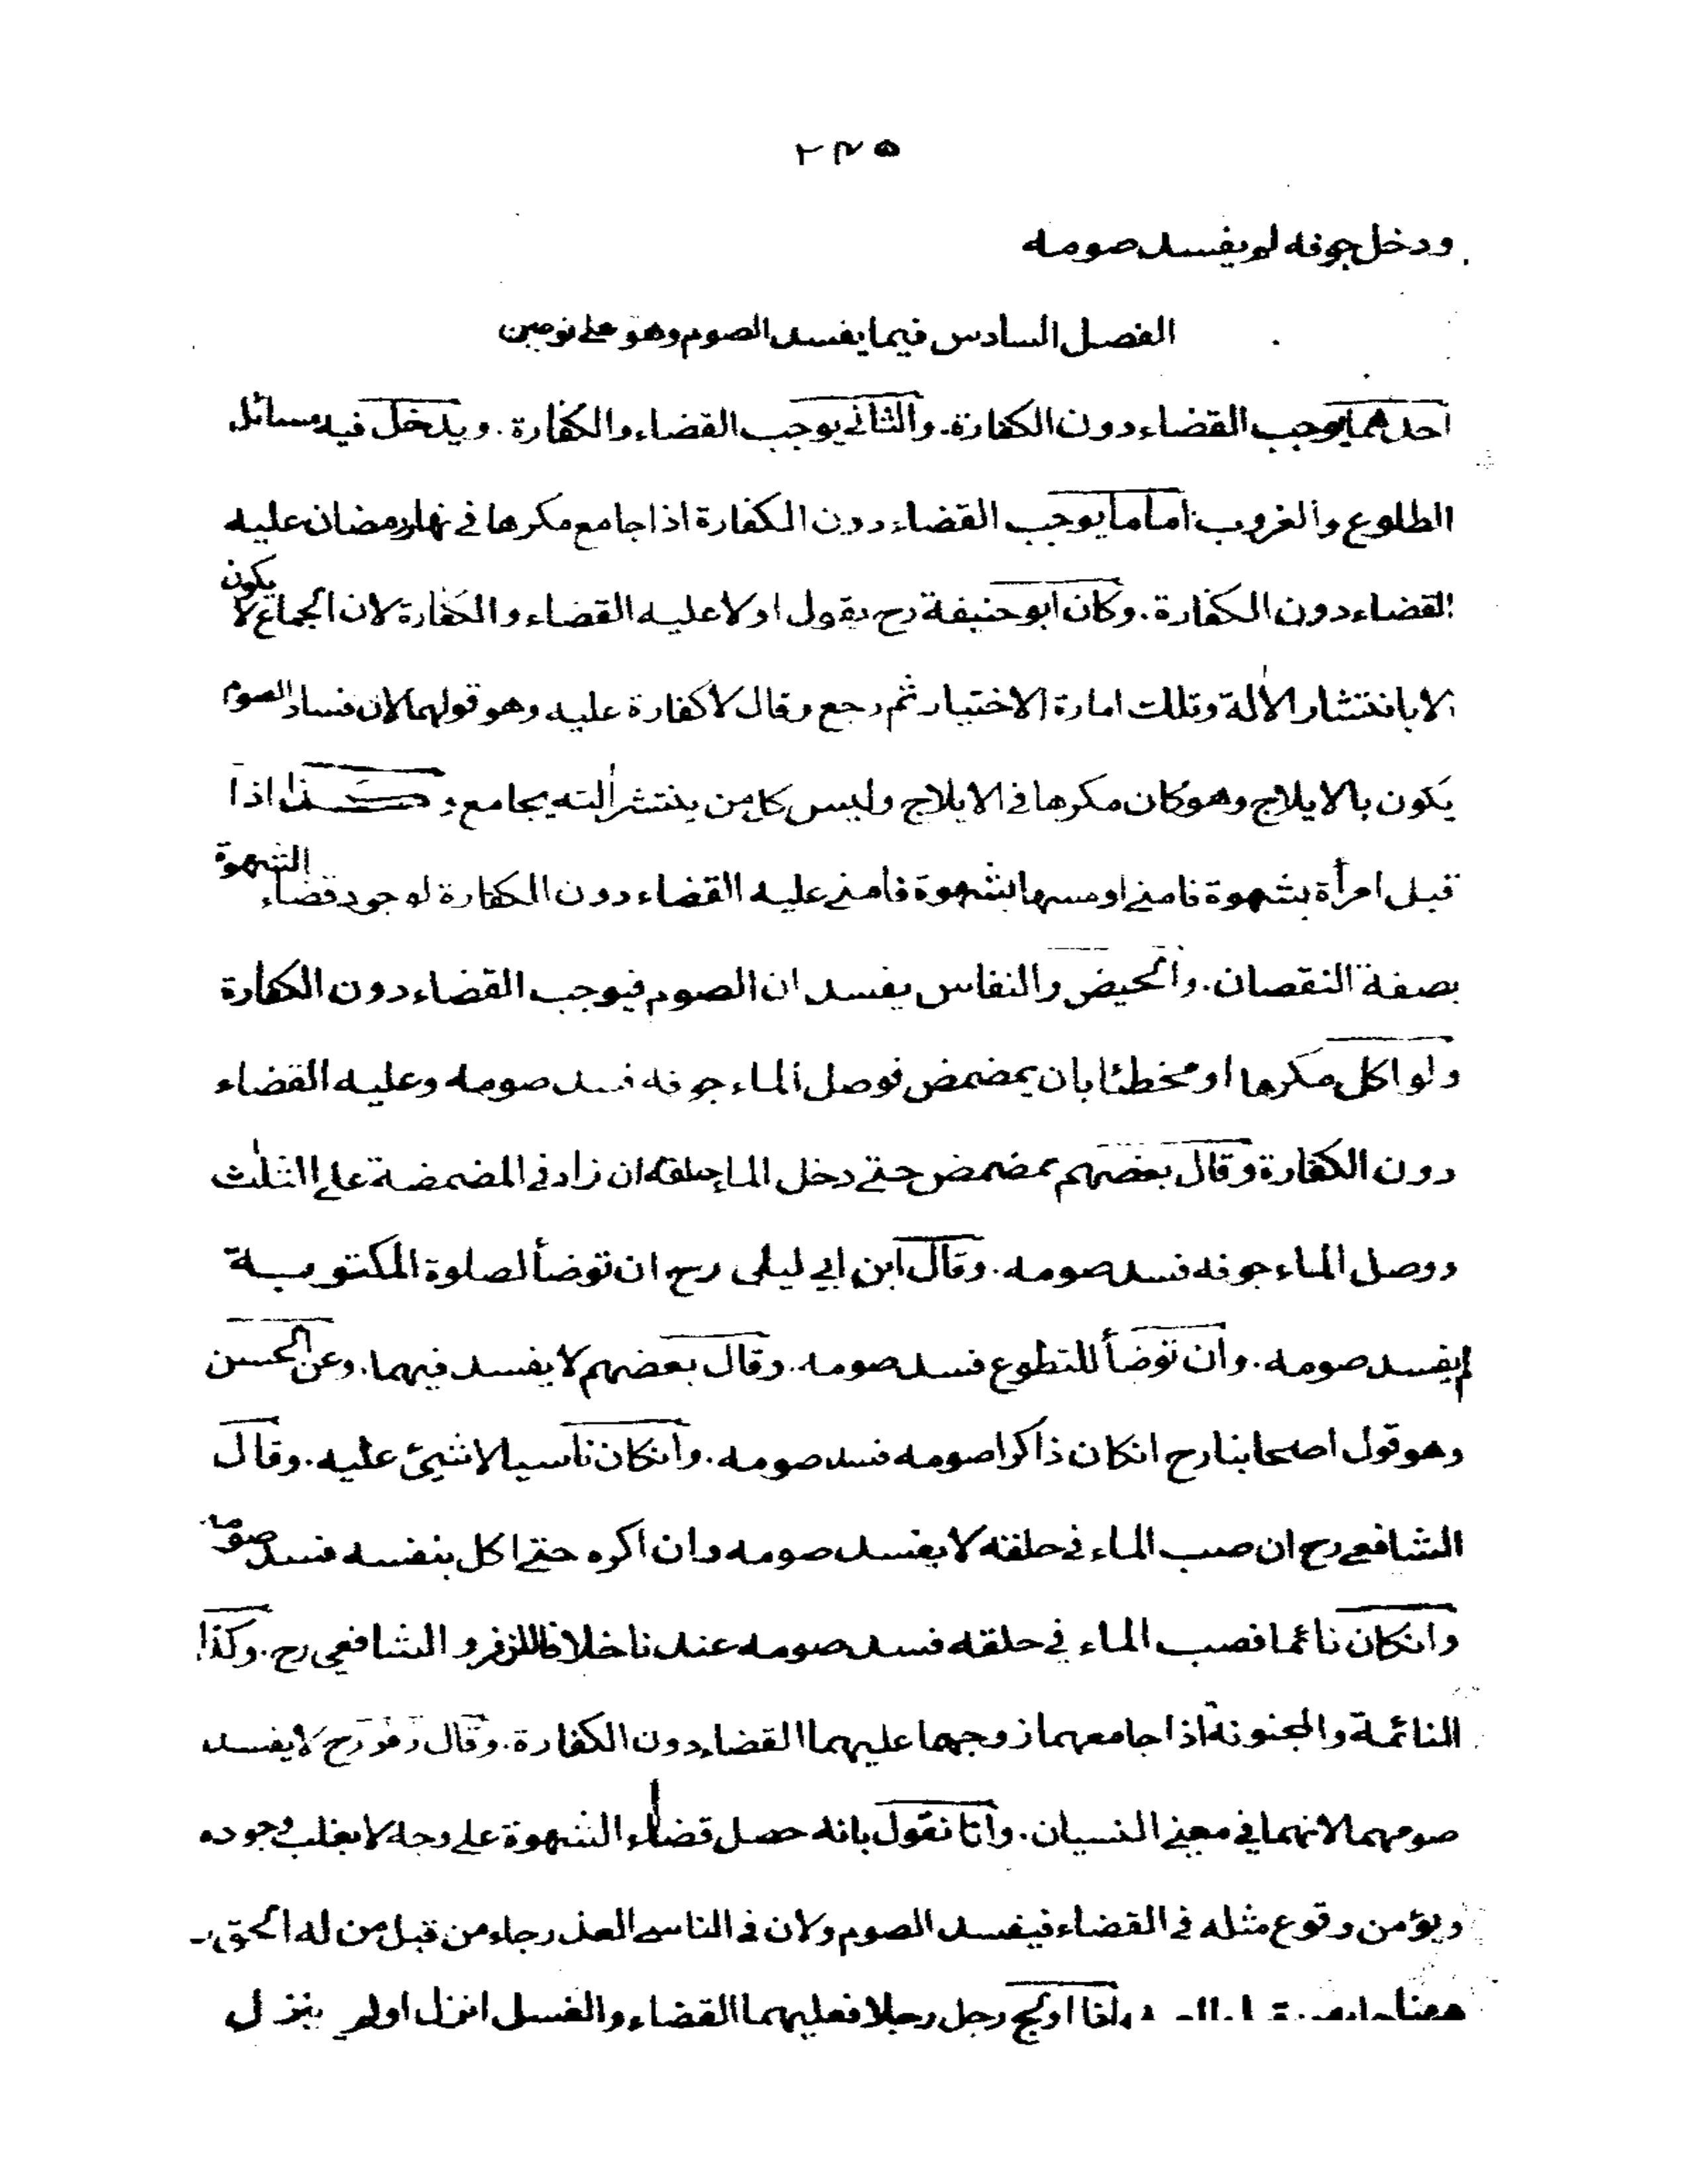 ۲۴۵
ودخل جوفه لم يفسد صومه
الفصل السادس فيما يفسد الصوم وهو على نوعين
احدهما يوجب القضاء دون الكفارة. والثاني يوجب القضاء والكفارة. ويدخل فيه مسائل
الطلوع والغروب اما ما يوجب القضاء دون الكفارة اذا جامع مكرها في نهار رمضان عليه
القضاء دون الكفارة. وكان ابو حنيفة رح يقول اولا عليه القضاء والكفارة لان الجماع لا يكون
الا بانتشار الألة وتلك امارة الاختيار ثم رجع وقال لا كفارة عليه وهو قولهما لان فساد الصوم
يكون بالايلاج وهو كان مكرها في الايلاج وليس كل من ينتشر ألته يجامع وكذا اذا
قبل امرأة بشهوة فامنى او مسها بشهوة فامنى عليه القضاء دون الكفارة لوجود قضاء الشهوة
بصفة النقصان. والحيض والنفاس يفسد ان الصوم فيوجب القضاء دون الكفارة
ولو اكل مكرها او مخطئا بان يمضمض فوصل الماء جوفه فسد صومه وعليه القضاء
دون الكفارة وقال بعضهم تمضمض حتى دخل الماء حلقه ان زاد في المضمضة على الثلث
ووصل الماء جوفه فسد صومه. وقال ابن ابي ليلى رح ان توضأ لصلوة المكتوبة
لم يفسد صومه. وان توضأ للتطوع فسد صومه. وقال بعضهم لا يفسد فيهما. وعن الحسن
وهو قول اصحابنا رح انكان ذاكرا صومه فسد صومه. وانكان ناسيا لا شيئ عليه. وقال
الشافعي رح ان صب الماء في حلقه لا يفسد صومه وان اكره حتى اكل بنفسه فسد صومه
وانكان نائما فصب الماء في حلقه فسد صومه عندنا خلافا لزفر والشافعي رح. وكذا
النائمة والمجنونة اذا جامعهما زوجهما عليهما القضاء دون الكفارة. وقال زفر رح لا يفسد
صومهما لانهما في معنى النسيان. وانا نقول بانه حصل قضاء الشهوة على وجه لا يغلب وجوده
ويؤمن وقوع مثله في القضاء فيفسد الصوم ولان في الناسى العذر جاء من قبل من له الحق
واذا اولج رجل رجلا فعليهما القضاء والغسل انزل او لم ينزل